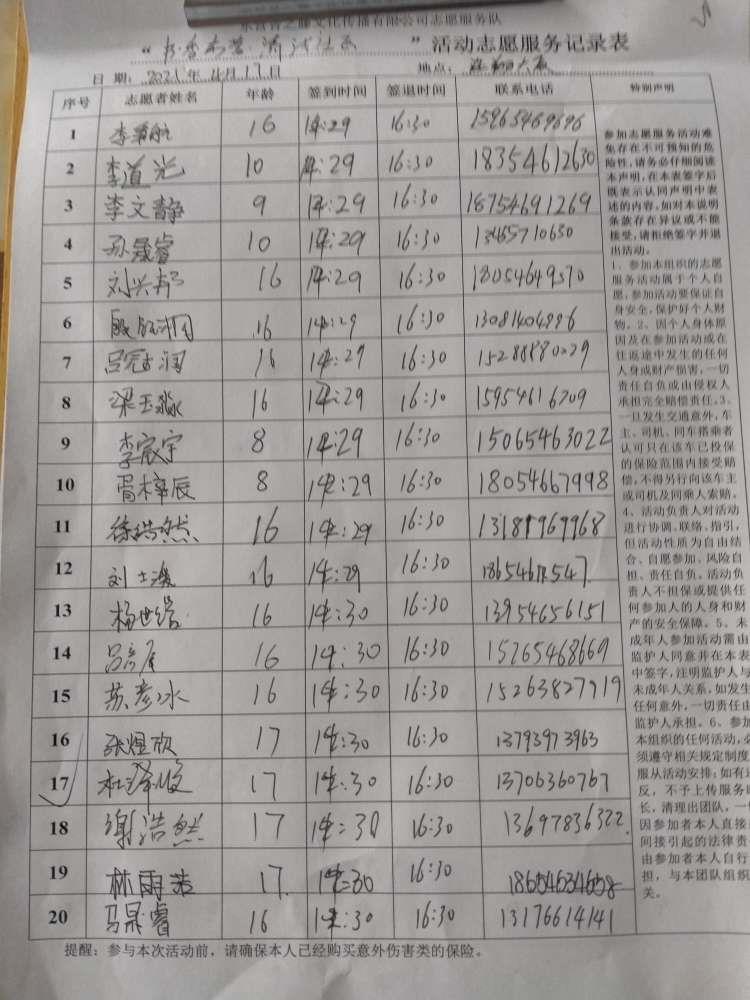 文化传播有限公司志愿服务队
“书香东营·清河社区”活动志愿服务记录表
日 期: 2021年4月17日 地点:
序号 志愿者姓名 年龄 签到时间 签退时间 联系电话 特别声明
1 16 14:29 16:30 15965469696
2 李道光 10 14:29 16:30 18354612630
3 李文静 9 14:29 16:30 18754691269
4 孙晟睿 10 14:29 16:30 13465710630
5 刘兴邦 16 14:29 16:30 18054649570
6 16 14:29 16:30
7 吕冠润 16 14:29 16:30
8 梁玉淼 16 14:29 16:30 15954616709
9 李宸宇 8 14:29 16:30 15065463022
10 胥梓辰 8 14:29 16:30 18054667998
11 徐浩然 16 14:29 16:30 13181969968
12 16 14:29 16:30
13 杨世铭 16 14:30 16:30 13954656151
14 吕彦廷 16 14:30 16:30 15265468669
15 苏彦冰 16 14:30 16:30 15263827919
16 张煜欣 17 14:30 16:30 13793973963
17 杜泽俊 17 14:30 16:30 13706360767
18 谢浩然 17 14:30 16:30 13697836322
19 林雨浩 17 14:30 16:30
20 马晟睿 16 14:30 16:30 13176614141
参加志愿服务活动难
免存在不可预知的危
险性,请务必仔细阅读
本声明,在本表签字后
既表示认同声明中表
述的内容,如对本说明
条款存在异议或不能
接受,请拒绝签字并退
出活动。
1、参加本组织的志愿
服务活动属于个人自
愿,参加活动要保证自
身安全,保护好个人财
物。2、因个人身体原
因及在参加活动或在
往返途中发生的任何
人身或财产损害,一切
责任自负或由侵权人
承担完全赔偿责任。3、
一旦发生交通意外,车
主、司机、同车搭乘者
认可只在该车已投保
的保险范围内接受赔
偿,不得另行向该车主
或司机及同乘人索赔。
4、活动负责人对活动
进行协调、联络、指引,
但活动性质为自由结
合、自愿参加、风险自
担、责任自负。活动负
责人不担保或提供任
何参加人的人身和财
产的安全保障。5、未
成年人参加活动需由
监护人同意并在本表
中签字,注明监护人与
未成年人关系,如发生
任何意外,一切责任由
监护人承担。6、参加
本组织的任何活动,必
须遵守相关规定制度
服从活动安排;如有违
反,不予上传服务时
长,清理出团队,一切
因参加者本人直接或
间接引起的法律责
由参加者本人自行
担,与本团队组织
关。
提醒:参与本次活动前,请确保本人已经购买意外伤害类的保险。